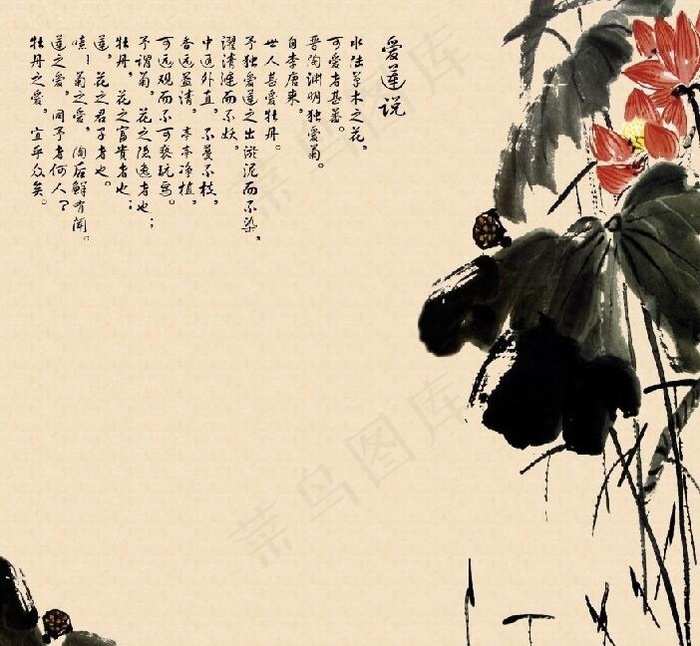 爱莲说
水陆草木之花，
可爱者甚蕃。
晋陶渊明独爱菊。
自李唐来，
世人甚爱牡丹。
予独爱莲之出淤泥而不染，
濯清涟而不妖，
中通外直，不蔓不枝，
香远益清，亭亭净植，
可远观而不可亵玩焉。
予谓菊，花之隐逸者也；
牡丹，花之富贵者也；
莲，花之君子者也。
噫！菊之爱，陶后鲜有闻。
莲之爱，同予者何人？
牡丹之爱，宜乎众矣。
菜鸟图库
菜鸟图库